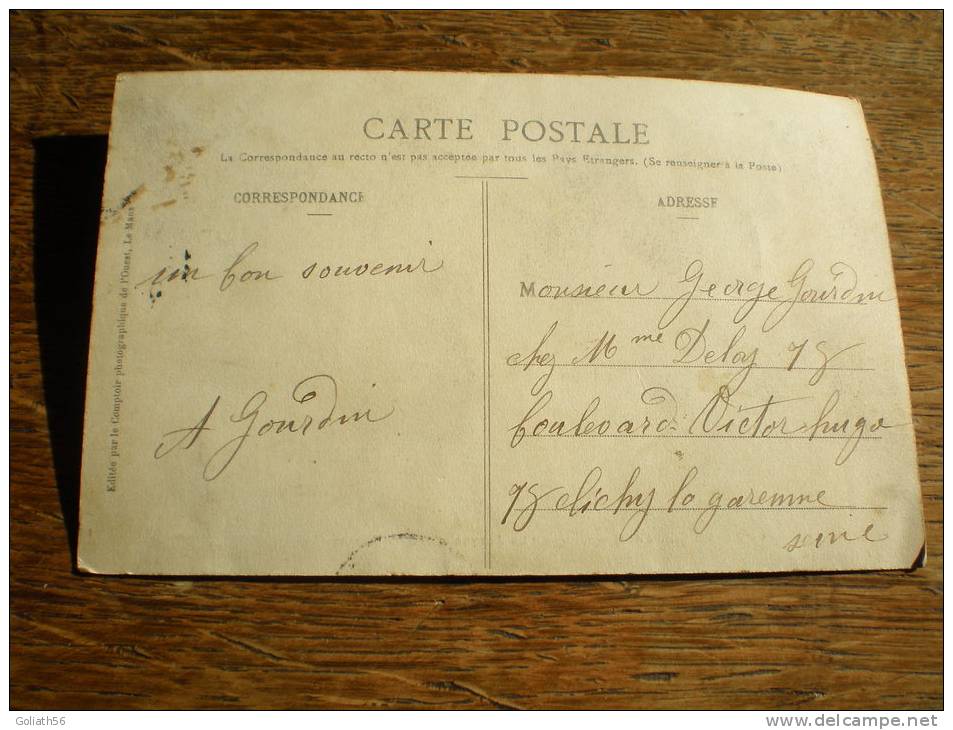 CARTE POSTALE
La Correspondance au recto n'est pas acceptée par tous les Pays Etrangers. (Se renseigner à la Poste)
CORRESPONDANCE
ADRESSE
Editée par le Comptoir photographique de l'Ouest, Le Mans
un bon souvenir
A Gourdin
Monsieur George Gourdin
chez Mme Deloy 78
boulevard Victor hugo
78 clichy la garenne
seine
Goliath56
www.delcampe.net